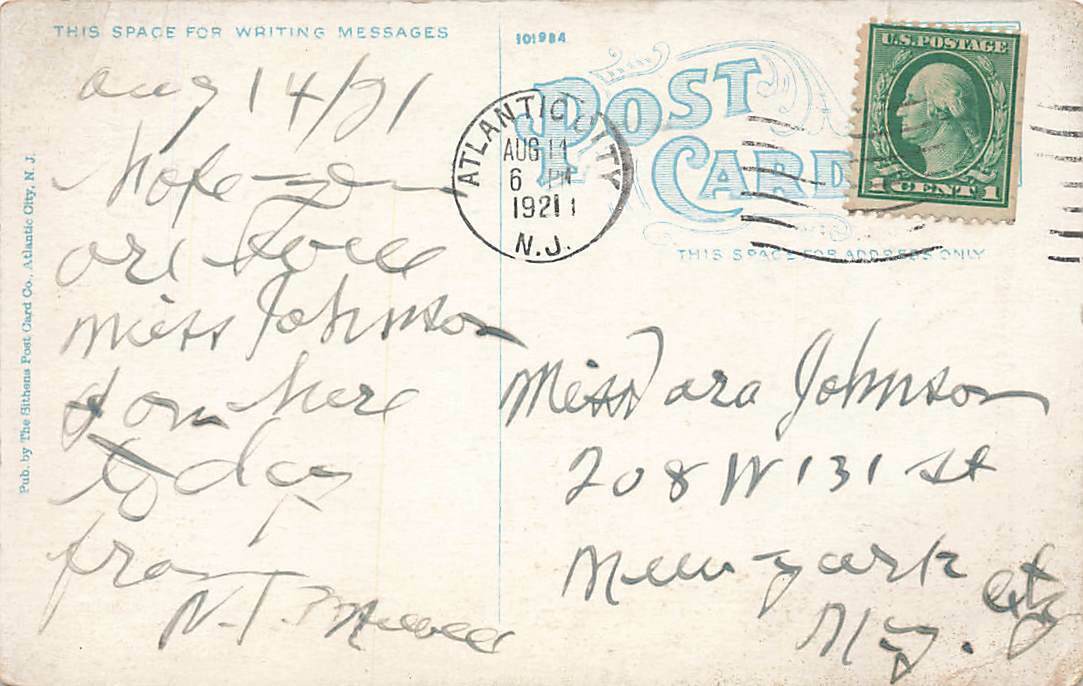 THIS SPACE FOR WRITING MESSAGES
101984
POST CARD
THIS SPACE FOR ADDRESS ONLY
U.S. POSTAGE
1 CENT 1
ATLANTIC CITY
AUG 14
6 PM
1921
N.J.
Pub. by The Sithens Post Card Co., Atlantic City, N. J.
Aug 14/21
Hope you
are well
Miss Johnson
I am here
to day
from
N. T.
Miss Dora Johnson
208 W 131 st
New York City
N.Y.